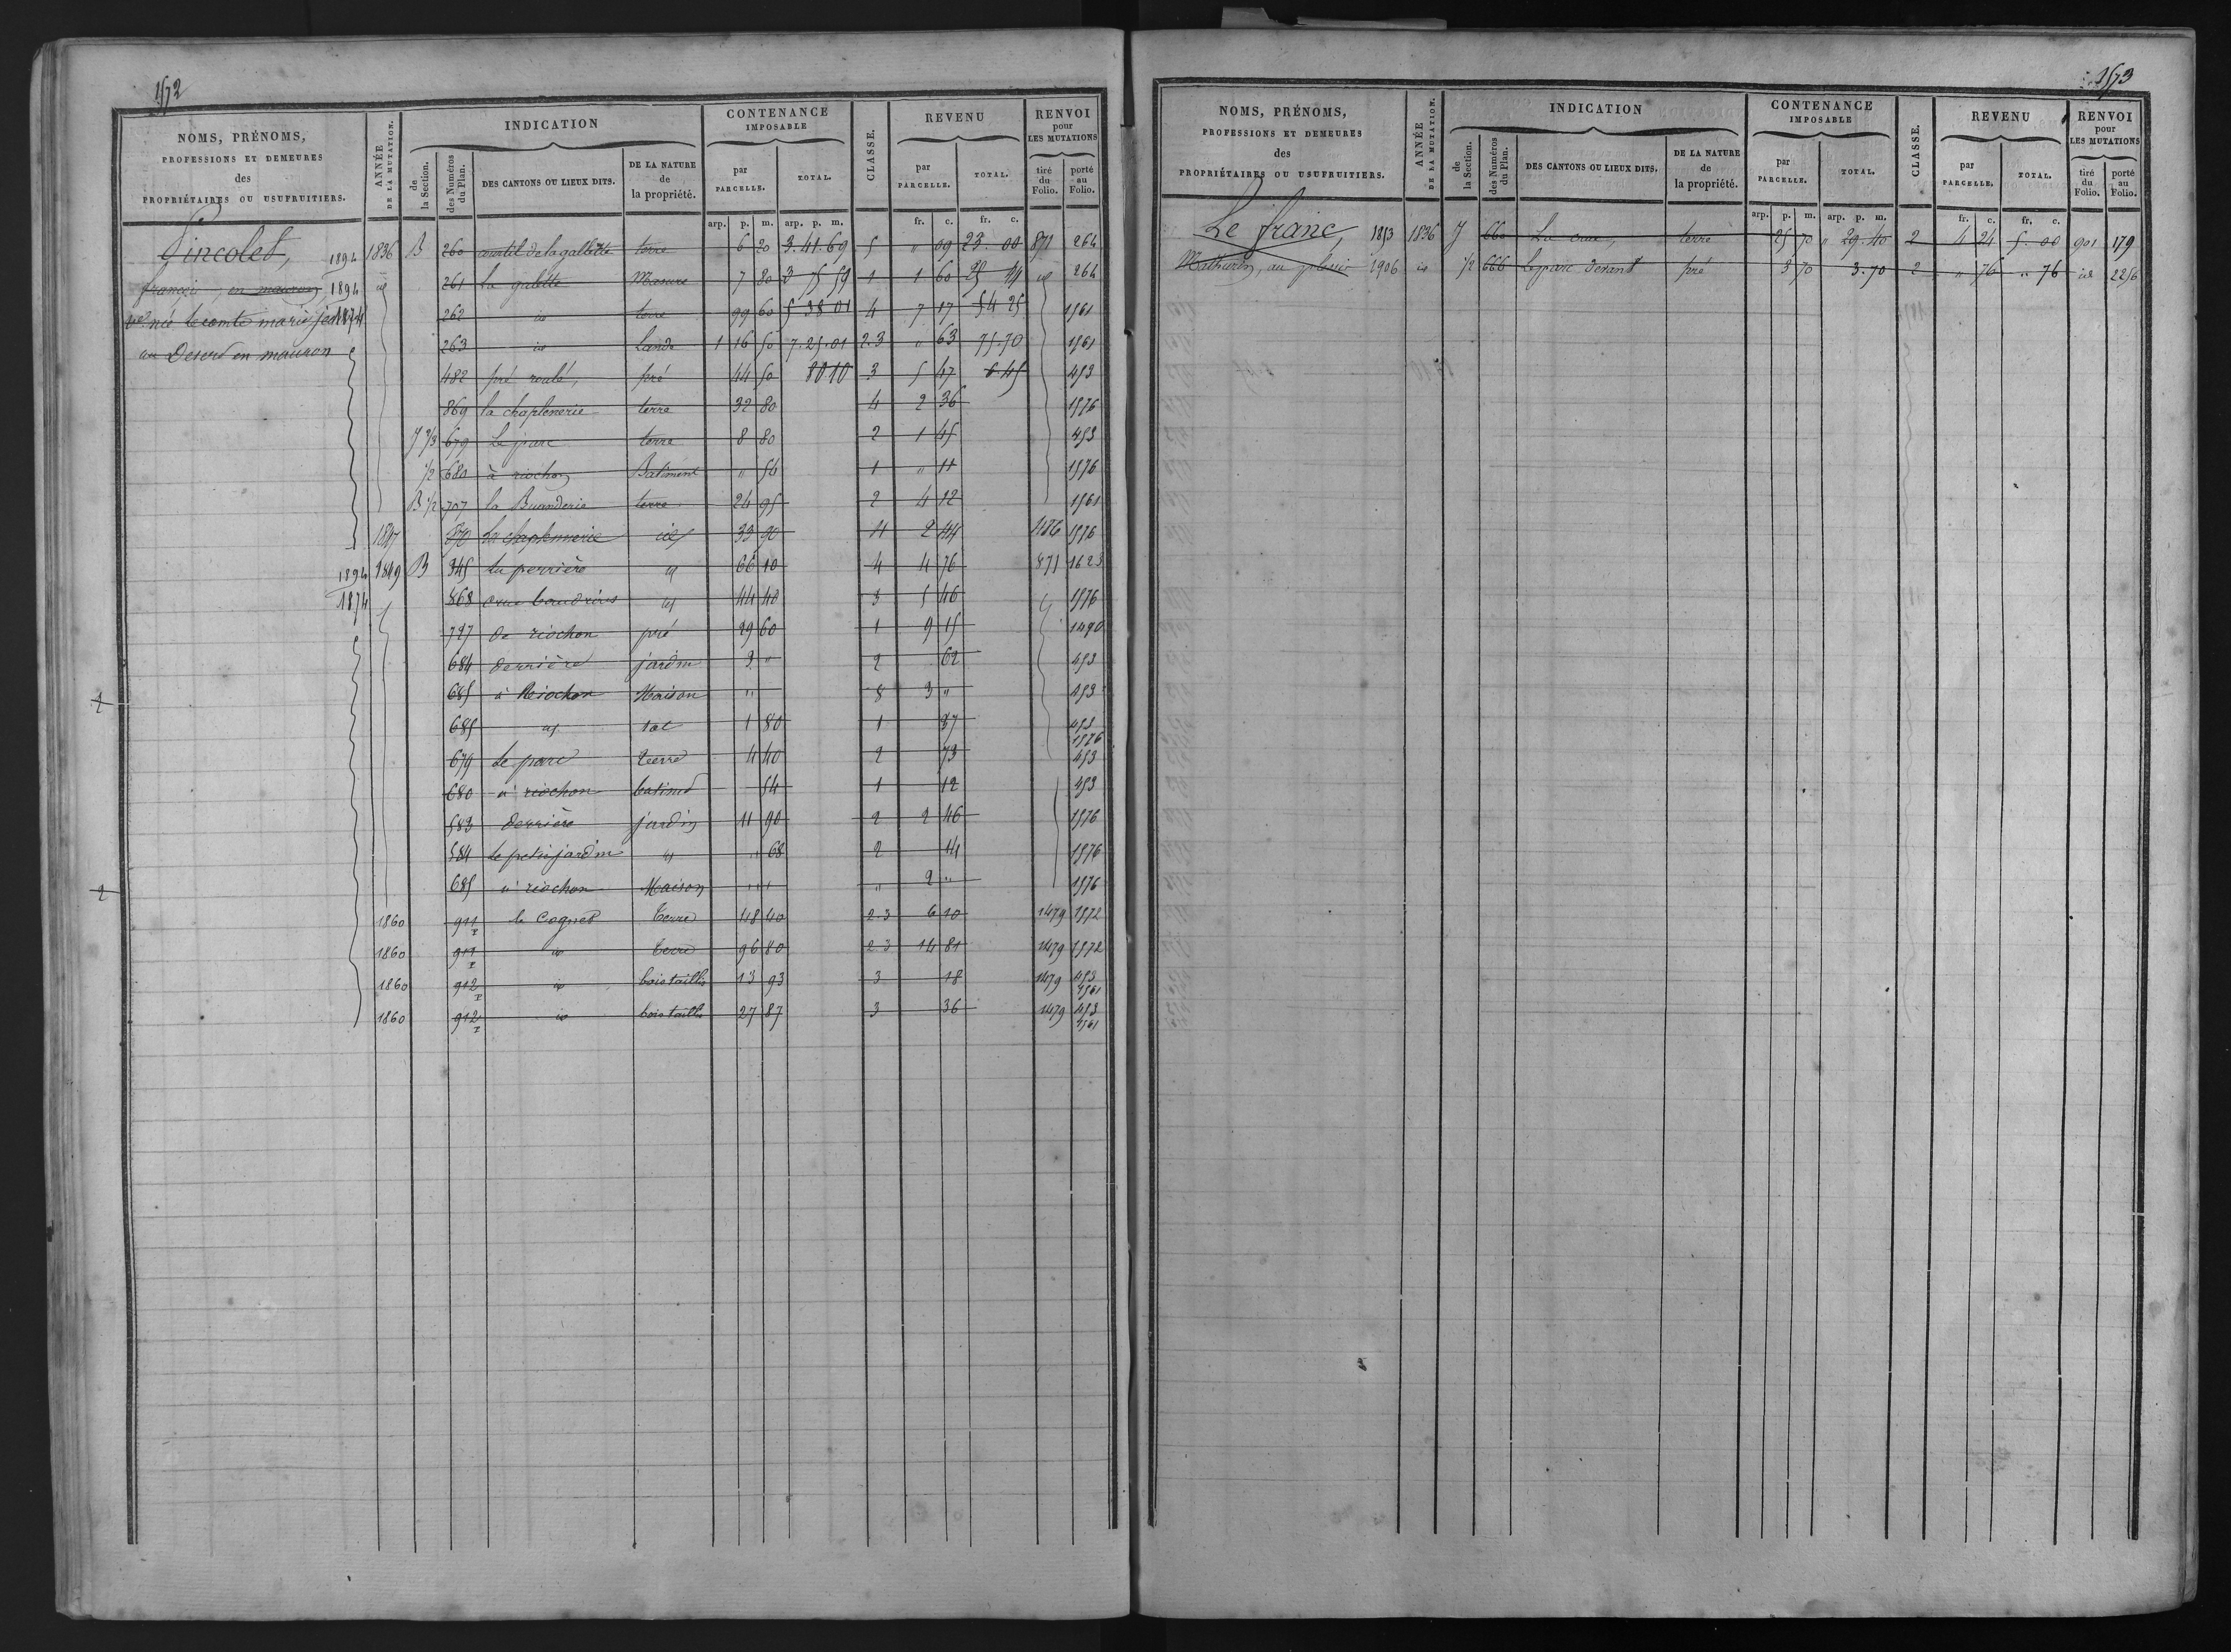 1572
NOMS, PRÉNOMS, PROFESSIONS ET DEMEURES des PROPRIÉTAIRES OU USUFRUITIERS.
ANNÉE DE LA MUTATION.
INDICATION
de la Section.
des Numéros du Plan.
DES CANTONS OU LIEUX DITS.
DE LA NATURE de la propriété.
CONTENANCE IMPOSABLE
par PARCELLE.
TOTAL.
CLASSE.
REVENU
par PARCELLE.
TOTAL.
RENVOI pour LES MUTATIONS
tiré du Folio.
porté au Folio.
arp. p. m. arp. p. m. fr. c. fr. c.
Pincolet, 1894 1836 B 260 courtil de la gallette terre 6 20 3.41.69 5 " 09 23.00 871 264
françois, en mauron 1894 id 261 la galette Masure 7 80 3 75 59 1 1 60 25 44 id 264
née le comte marie 1874 262 id terre 99 60 5 38 01 4 7 17 54 25 1561
au Desert en mauron 263 id Lande 1 16 50 7.25.01 2.3 " 63 75.70 1561
482 pré roulé, pré 44 50 80 10 3 5 47 6.45 453
869 la chaplenerie terre 32 80 4 2 36 1576
J 2/3 679 Le parc terre 8 80 2 1 45 453
1/2 680 à riochon Batiment " 54 1 " 11 1576
B 1/2 707 la Buanderie terre 24 95 2 4 12 1561
1847 870 La chaplennerie id 33 90 4 2 44 1486 1576
1894 1849 B 345 La perrière id 66 10 4 4 76 871 1623
1874 868 id 44 40 3 5 46 1576
727 de riochon pré 29 60 1 9 15 1490
684 derrière jardin 3 " 2 62 453
1 685 à Riochon Maison " 8 3 " 453
685 id sol 1 80 1 37 453 1576
679 Le parc terre 4 40 2 73 453
680 à riochon batimt 54 1 12 453
583 derrière jardin 11 90 2 2 46 1576
584 le petit jardin id " 68 2 14 1576
2 685 à riochon Maison " " " 2 " 1576
1860 911 p le Cognet terre 48 40 2.3 6 10 1479 1572
1860 911 p id terre 96 80 2.3 14 81 1479 1572
1860 912 p id bois taillis 13 93 3 18 1479 453 1561
1860 912 p id bois taillis 27 87 3 36 1479 453 1561
1573
NOMS, PRÉNOMS, PROFESSIONS ET DEMEURES des PROPRIÉTAIRES OU USUFRUITIERS.
ANNÉE DE LA MUTATION.
INDICATION
de la Section.
des Numéros du Plan.
DES CANTONS OU LIEUX DITS.
DE LA NATURE de la propriété.
CONTENANCE IMPOSABLE
par PARCELLE.
TOTAL.
CLASSE.
REVENU
par PARCELLE.
TOTAL.
RENVOI pour LES MUTATIONS
tiré du Folio.
porté au Folio.
arp. p. m. arp. p. m. fr. c. fr. c.
Le franc, 1853 1836 J 660 La croix, terre 25 70 " 29.40 2 4 24 5.00 901 179
Mathurin, au plessis 1906 id 1/2 666 Le parc devant pré 3 70 3.70 2 " 76 " 76 id 2256